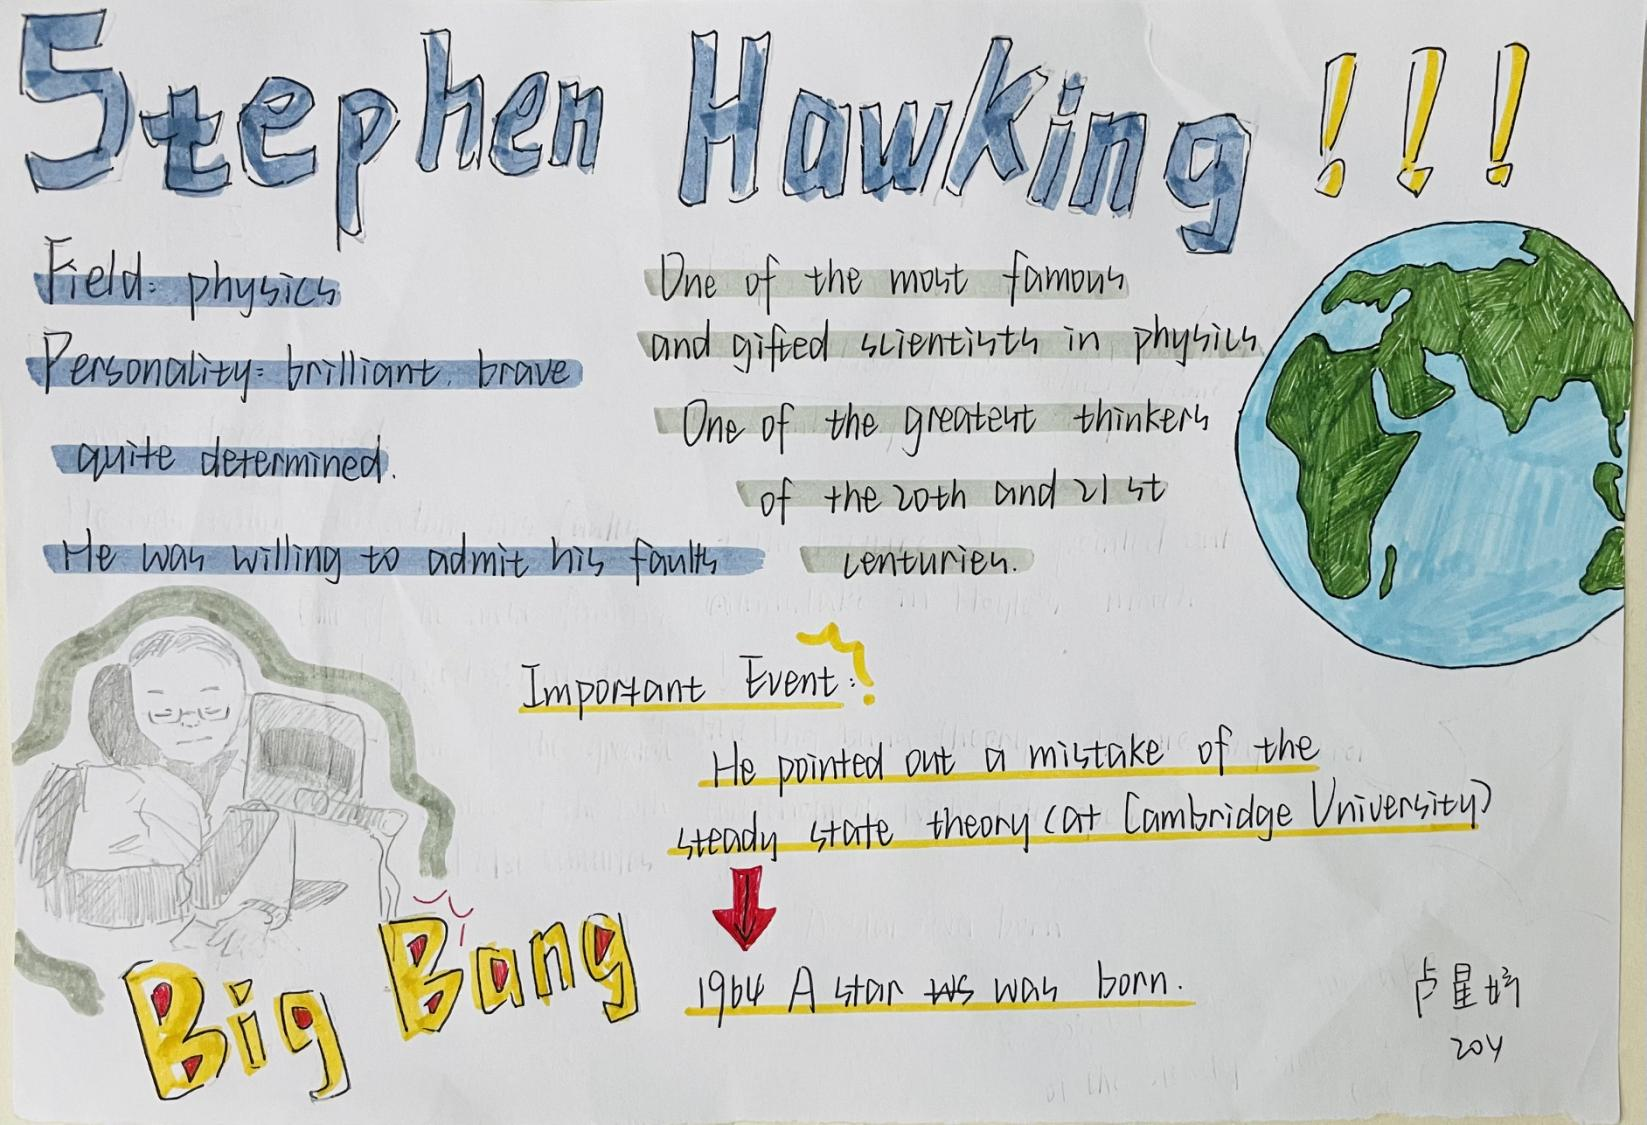 Stephen Hawking!!!
Field: physics
Personality: brilliant, brave
quite determined.
He was willing to admit his faults
One of the most famous
and gifted scientists in physics
One of the greatest thinkers
of the 20th and 21st
centuries.
Important Event:
He pointed out a mistake of the
steady state theory (at Cambridge University)
1964 A star ws was born.
Big Bang
卢星
204